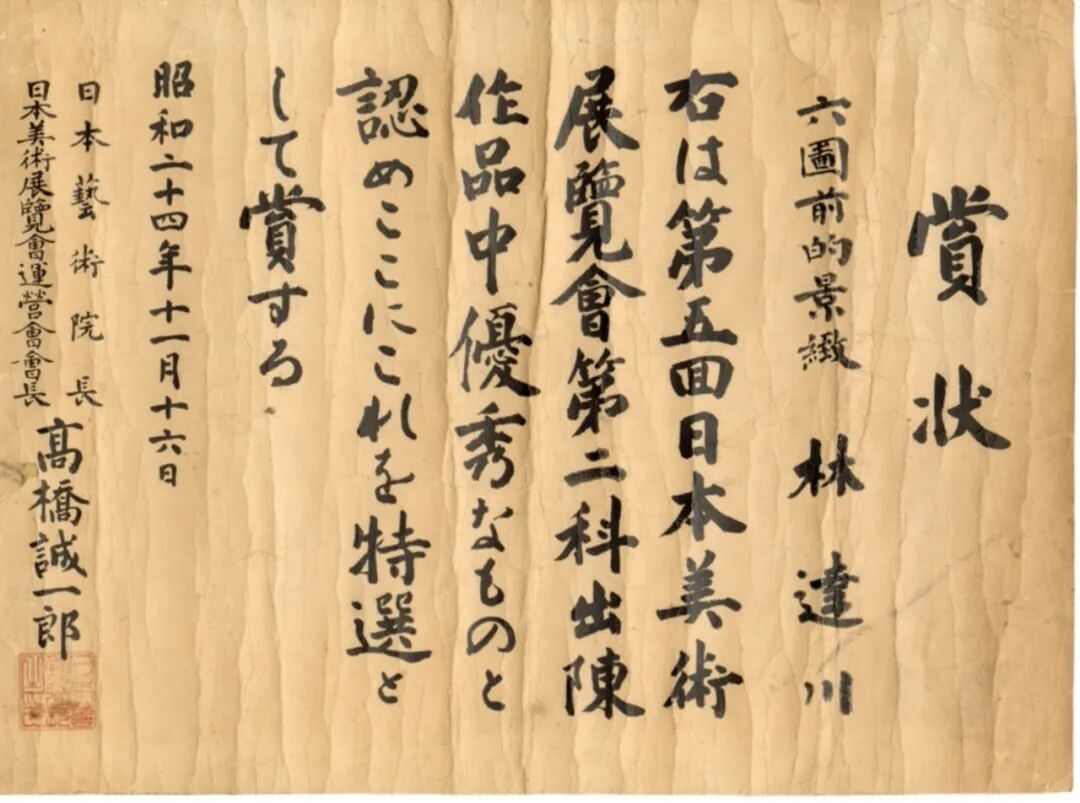 賞状
六圖前的景緻 林達川
右は第五回日本美術
展覽會第二科出陳
作品中優秀なものと
認めここにこれを特選と
して賞する
昭和二十四年十一月十六日
日本藝術院長
日本美術展覽會運營會會長
髙橋誠一郎